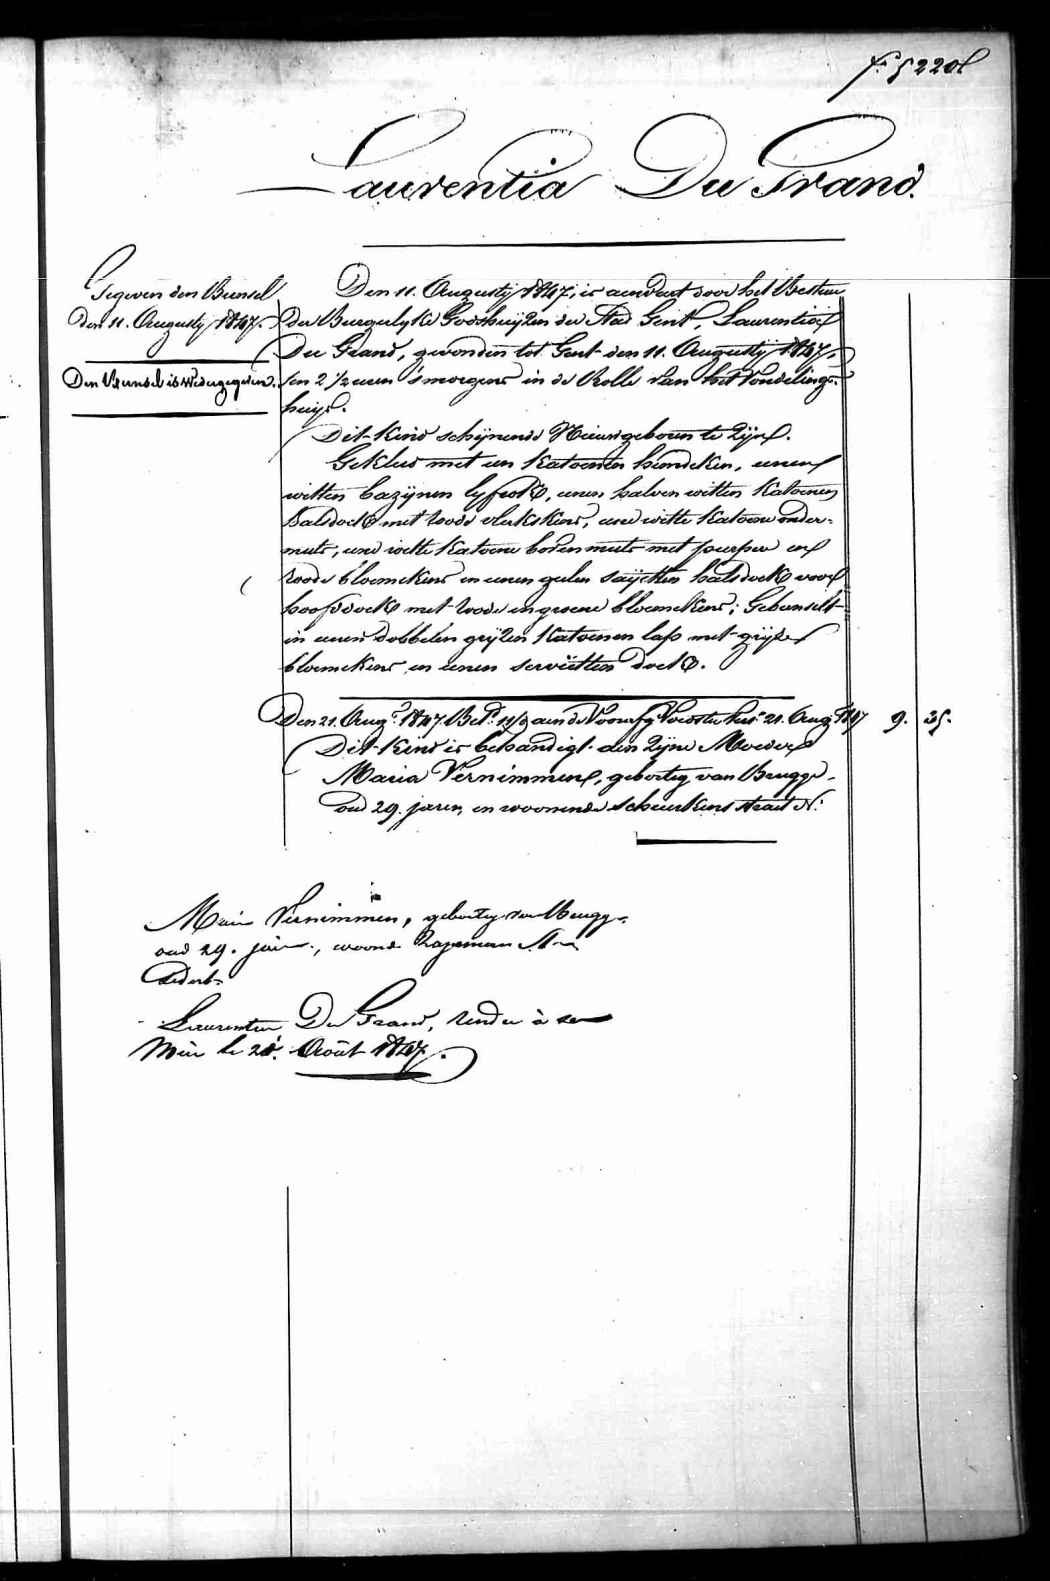 f. 5220
Laurentia Du Grand.
Gegeven den Bunsel
den 11. Augusty 1847.
Den Bunsel is wedergegeven.
Den 11. Augusty 1847, is aenveert door het Bestuer
der Burgerlyke Godshuyzen der Stad Gent, Laurentia
Du Grand, gevonden tot Gent den 11. Augusty 1847.
ten 2 1/2 uren 's morgens in de Rolle van het Vondelings-
huys.
Dit Kind schynende Nieuwgeboren te Zyn.
Gekleed met een Katoenen hemdeken, eenen
witten bazynen lyfrok, eenen halven witten Katoenen
halsdoek met roode vlekskens, eene witte Katoene onder-
muts, eene witte Katoene bovenmuts met purper en
roode bloemekens en eenen geelen sayetten halsdoek voor
hoofddoek met roode en groene bloemekens; Gebunselt
in eenen dobbelen gryzen Katoenen lap met gryze
bloemekens en eenen servietten doek.
Den 21. Aug. 1847 Bet. aen de Voorsz. Voedster 21. Aug. 1847 9. 25.
Dit Kind is behandigt aen Zyne Moeder
Maria Vernimmen, geboortig van Brugge,
oud 29. jaren, en woonende Scheurkens straet N.
Marie Vernimmen, geboortig van Brugge
oud 29. jaren, woont
Laurentia Du Grand, rendu à sa
Mère le 21. Août 1847.